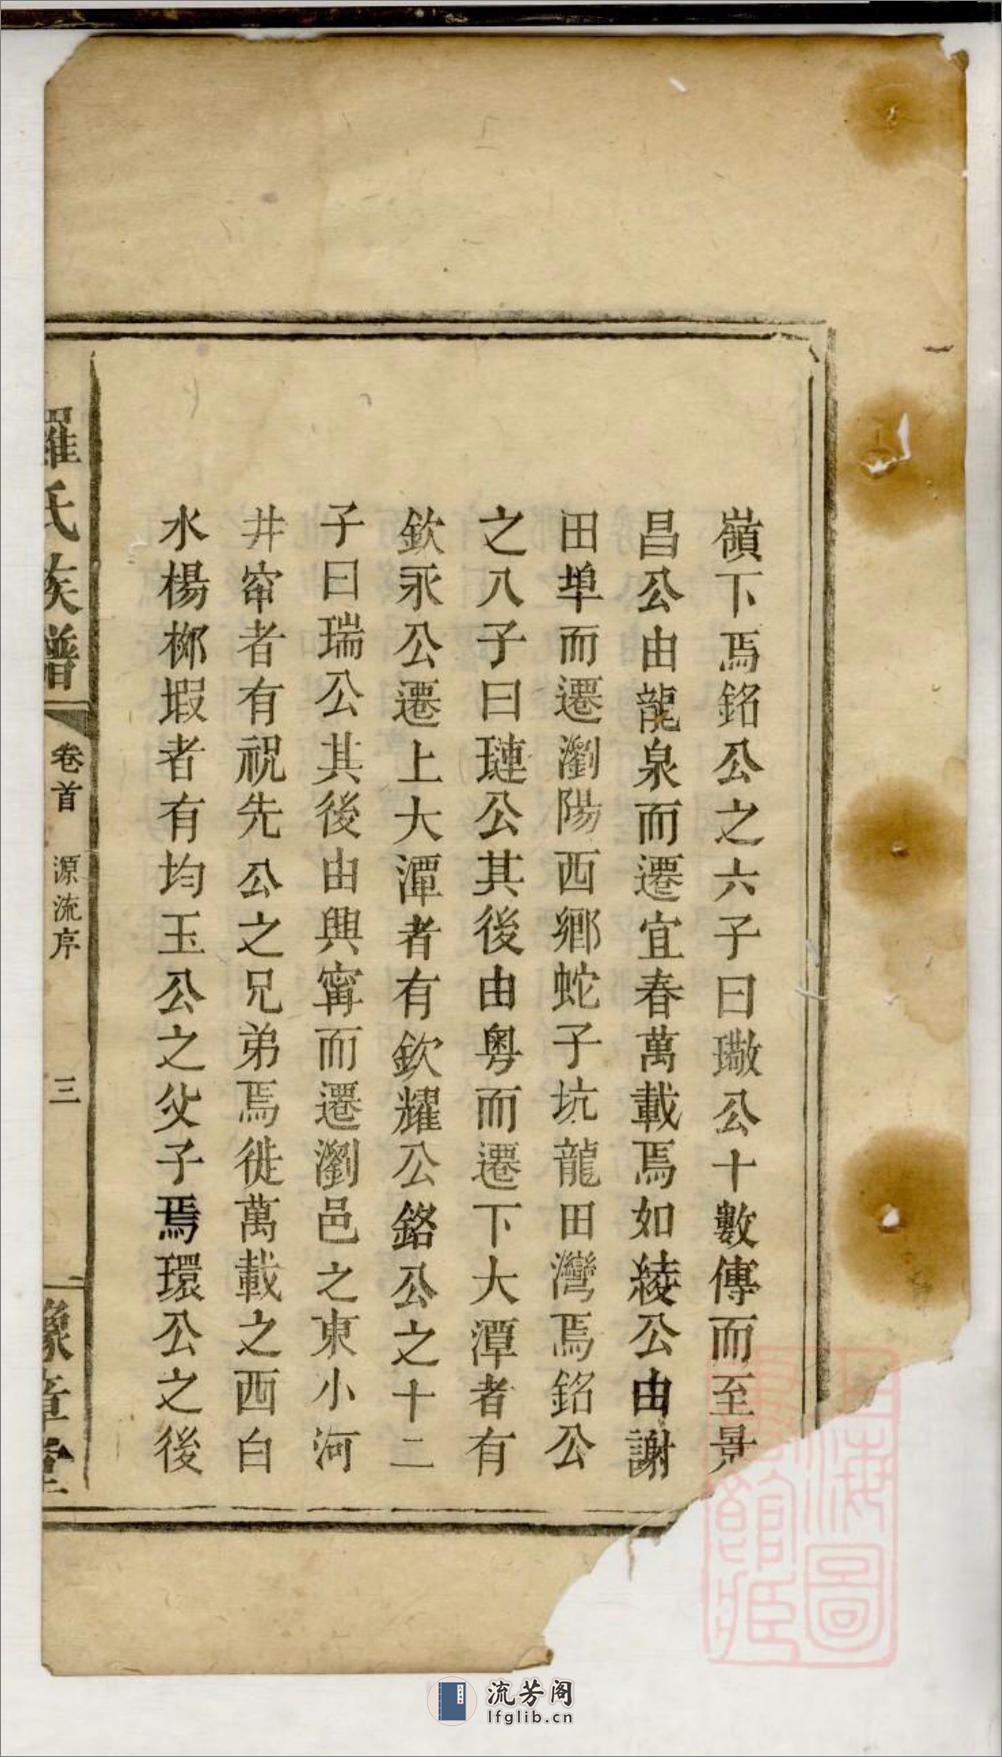 嶺下焉銘公之六子曰璥公十數傳而至景
昌公由龍泉而遷宜春萬載焉如綾公由謝
田埠而遷瀏陽西鄉蛇子坑龍田灣焉銘公
之八子曰璉公其後由粵而遷下大潭者有
欽永公遷上大潭者有欽耀公銘公之十二
子曰瑞公其後由興甯而遷瀏邑之東小河
井窜者有祝先公之兄弟焉徙萬載之西白
水楊梛塅者有均玉公之父子焉環公之後
羅氏族譜 卷首 源流序 三 豫章堂
上海圖書館藏
流芳阁
lfglib.cn